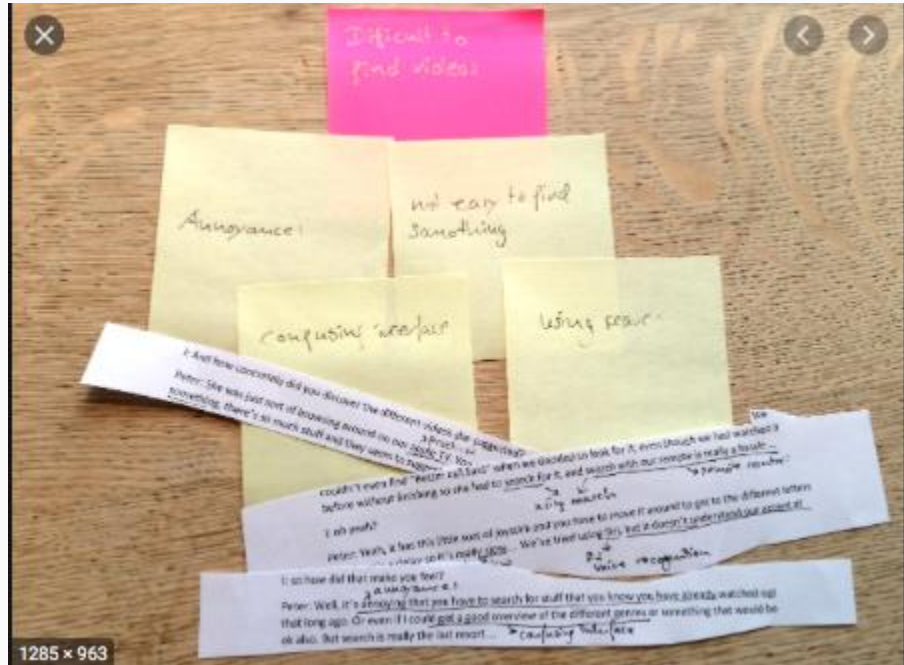 Dificult to
find videos
Annoyance!
not easy to find
somothing
confusing
using
I: And how concretely did you discover the different videos she suggested?
Peter: She was just sort of browsing around on our apple TV. You
something, there's so much stuff and they seem to
couldn't even find "Better Call Saul" when we decided to look for it, even though we had watched a
before without finishing so she had to search for it, and search with our remote is really a hassle...
using search
remote control
I: oh yeah?
Peter: Yeah, it has this little sort of joystick and you have to move it around to get to the different letters
so it's really We've tried using Siri, but it doesn't understand our accent at
voice recognition
I: so how did that make you feel?
annoyance!
Peter: Well, it's annoying that you have to search for stuff that you know you have already watched up
that long ago. Or even if I could get a good overview of the different genres or something that would be
ok also. But search is really the last resort...
confusing interface
1285 × 963